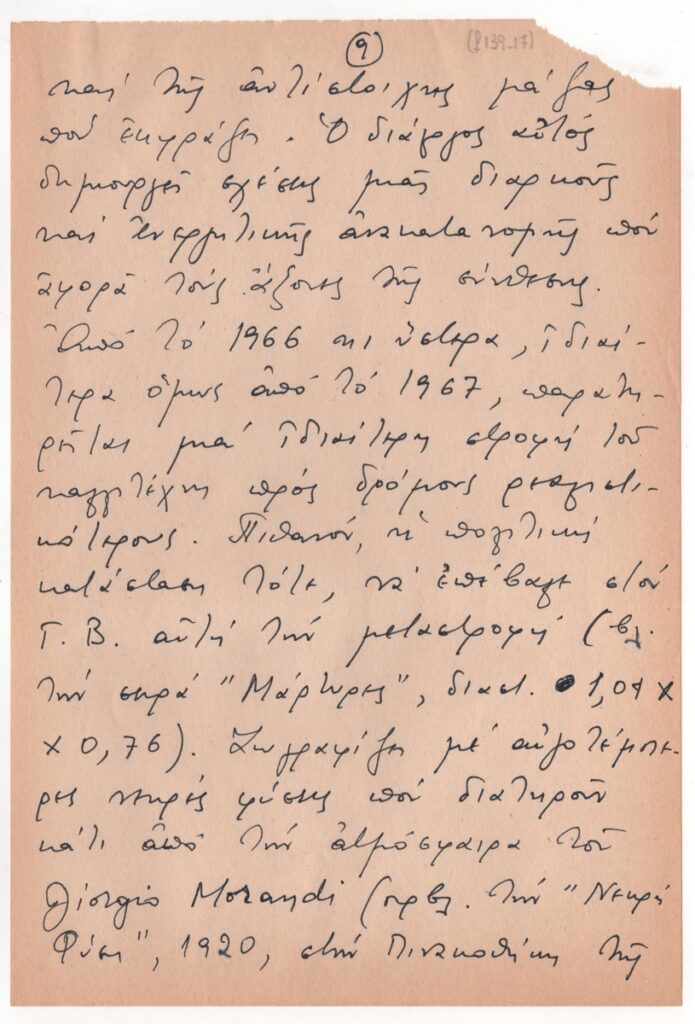 9 (β139-17)
καί τῆς ἀντίστοιχης μάζας
πού ἐκφράζει. Ὁ διάλογος αὐτός
δημιουργεῖ σχέσεις μιᾶς διαρκοῦς
καί ἐνεργητικῆς ἀνακατανομῆς πού
ἀφορᾶ τούς ἄξονες τῆς σύνθεσης.
Ἀπό τό 1966 κι ὕστερα, ἰδιαί-
τερα ὅμως ἀπό τό 1967, παρατη-
ρεῖται μιά ἰδιαίτερη στροφή τοῦ
καλλιτέχνη πρός δρόμους ρεαλιστι-
κότερους. Πιθανόν, ἡ πολιτική
κατάσταση τότε, νά ἐπέβαλε στόν
Γ. Β. αὐτή τήν μεταστροφή (βλ.
τήν σειρά "Μάρτυρες", διαστ. 1,01 x
x 0,76). Ζωγραφίζει μέ
ρες νεκρές φύσεις πού διατηροῦν
κάτι ἀπό τήν ἀτμόσφαιρα τοῦ
Giorgio Morandi (πρβλ. τήν "Νεκρή
Φύση", 1920, στήν Πινακοθήκη τῆς